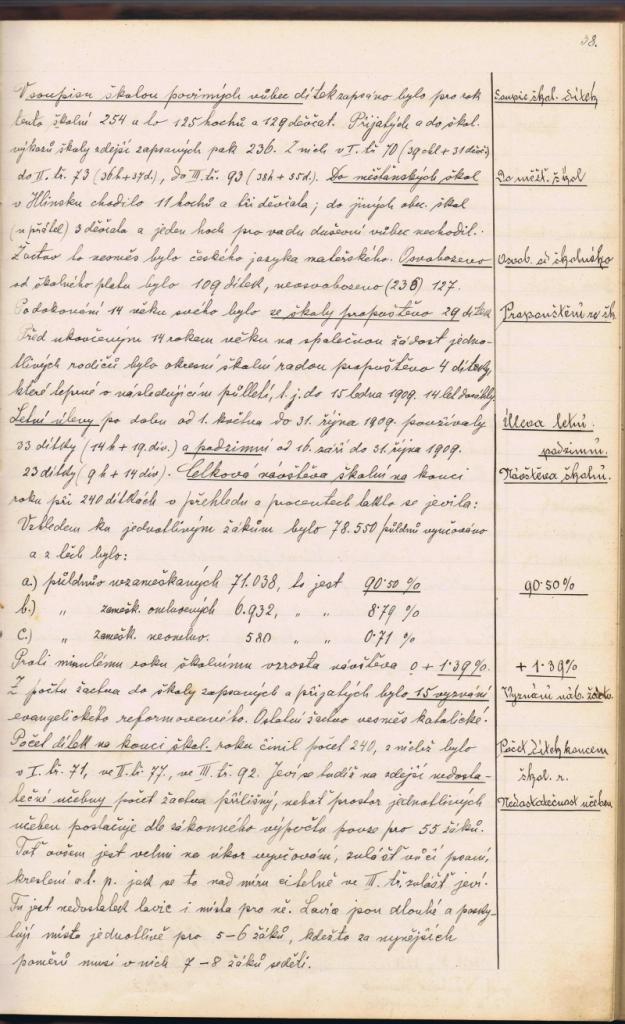 38.
V soupisu školou povinných vůbec dítek zapsáno bylo pro rok
tento školní 254 a to 125 hochů a 129 děvčat. Přijatých a do škol.
výkazů školy zdejší zapsaných pak 236. Z nich v I. tř. 70 (39 chl + 31 děvč.)
do II. tř. 73 (36h + 37d.), do III. tř. 93 (38h + 55d.). Do měšťanských škol
v Hlinsku chodilo 11 hochů a tři děvčata; do jiných obec. škol
3 děvčata a jeden hoch pro vadu duševní vůbec nechodil.
Žactvo to veskrs bylo českého jazyka mateřského. Osvobozeno
od školného platu bylo 109 dítek, neosvobozeno (236) 127.
Po dokonání 14 věku svého bylo ze školy propuštěno 29 dítek
Před ukončeným 14 rokem věku na společnou žádost jedno-
tlivých rodičů bylo okresní školní radou propuštěno 4 dítky,
které teprvé v následujícím půlletí, t. j. do 15 ledna 1909. 14 let dosáhly
Letní úlevy po dobu od 1. května do 31. října 1909. používaly
33 dítky (14h + 19. div.) a podzimní od 16. září do 31. října 1909.
23 dítky (9h + 14 div). Celková návštěva školní na konci
roku při 240 dítkách v přehledu a procentech takto se jevila:
Vzhledem ku jednotlivým žákům bylo 78.550 půldnů vyučováno
a z těch bylo:
a.) půldnův nezameškaných 71.038, to jest 90·50 %
b.) „ zamešk. omluvených 6.932, „ „ 8·79 %
c.) „ zamešk. neomluv. 580 „ „ 0·71 %
Proti minulému roku školnímu vzrostla návštěva o + 1·39 %.
Z počtu žactva do školy zapsaných a přijatých bylo 15 vyznání
evangelického reformovaného. Ostatní žactvo vesměs katolické.
Počet dítek na konci škol. roku činil počet 240, z nichž bylo
v I. tř. 71, ve II. tř. 77, ve III. tř. 92. Jeví se tudíž na zdejší nedosta-
tečné učebny počet žactva přílišný, neboť prostor jednotlivých
učeben postačuje dle zákonného výpočtu pouze pro 55 žáků.
Toť ovšem jest velmi na úkor vyučování, zvlášť vůči psaní,
kreslení a t. p. jak se to nad míru citelně ve III. tř. zvlášť jeví.
Tu jest nedostatek lavic i místa pro ně. Lavice jsou dlouhé a posky-
tují místa jednotlivě pro 5–6 žáků, kdežto za nynějších
poměrů musí v nich 7–8 žáků seděti.
Soupis škol. dítek
Do měšť. škol
Osvob. od školného
Propouštění ze šk.
Úleva letní.
podzimní.
Návštěva školní.
90·50 %
+ 1·39 %
Vyznání náb. žactva
Počet dítek koncem
škol. r.
Nedostatečnost učeben